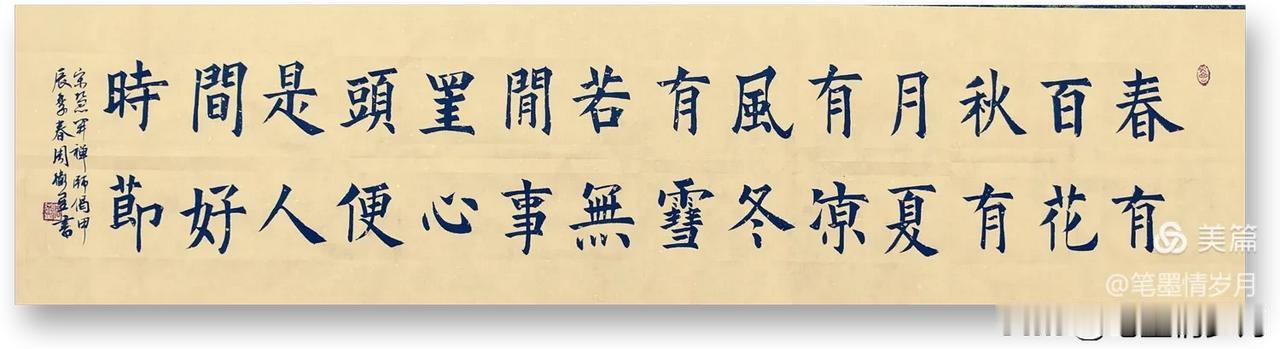 春有
百花
秋有
月夏
有凉
風冬
有䨮
若無
閒事
罣心
頭便
是人
間好
時莭
宋慧开禅師偈甲
辰季春周書
美篇
@笔墨情岁月